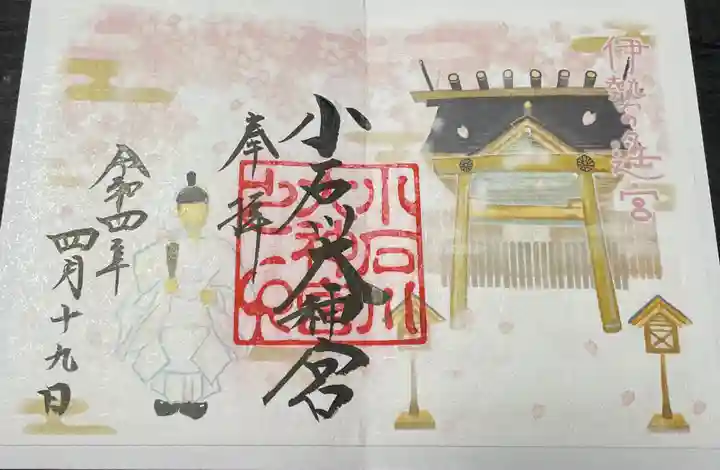 伊勢の遙宮
小石川大神宮
奉拝
小石川
大神宮
之印
令和四年
四月十九日